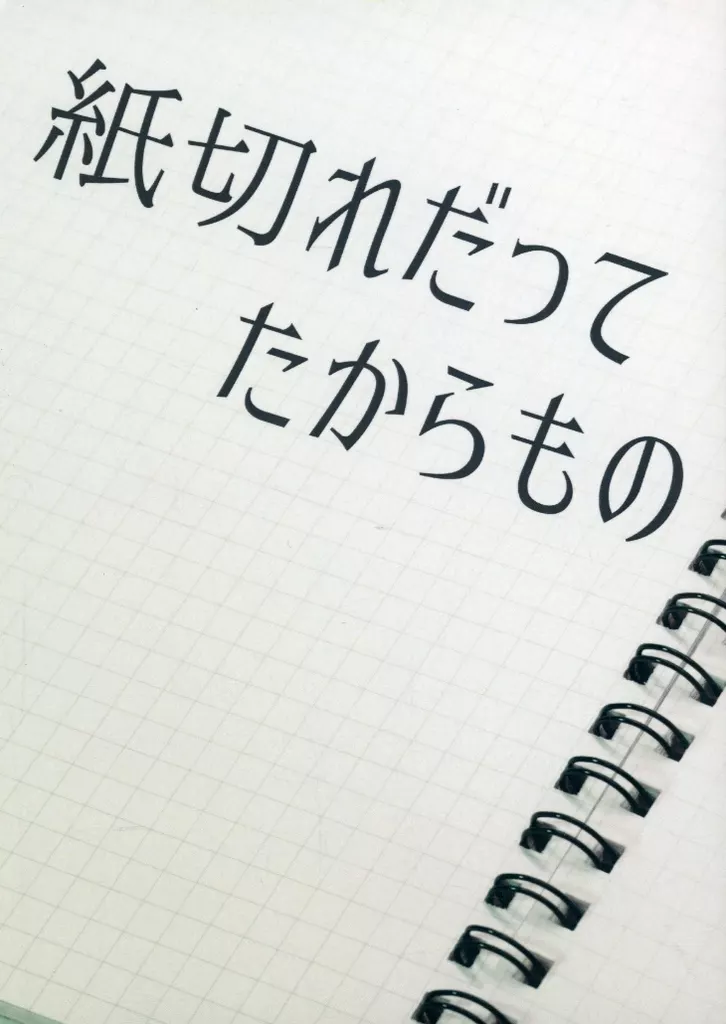 紙切れだって
たからもの